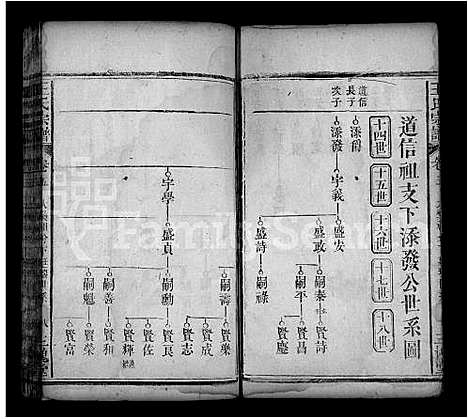 王氏宗譜
道信祖支下添發公世系圖
十四世
十五世
十六世
十七世
十八世
道信
長子 添爵
次子 添發
宇義
盛安
盛政
嗣泰
賢詩
賢昌
嗣平
賢慶
盛詩
嗣祿
宇學
盛貞
嗣壽
賢樂
賢成
賢志
嗣勳
賢良
賢佐
賢輝
嗣善
賢和
賢榮
嗣魁
賢富
王氏宗譜
FamilySearch